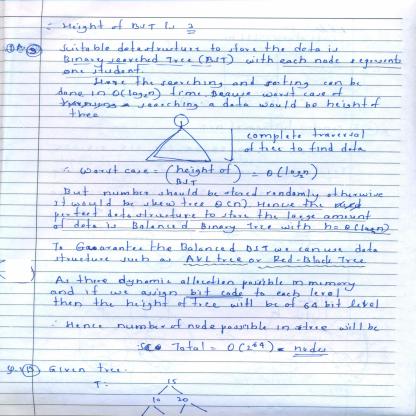 ∴ Height of BST is 3
Suitable data structure to store the data is
Binary searched Tree (BST) with each node represents
one student.
Here the searching and sorting can be
done in O(log₂n) time. Because worst case of
searching a data would be height of
three
complete traversal
of tree to find data
∴ worst case = (height of BST) = O(log₂n)
But number should be stored randomly otherwise
it would be skew tree O(n) Hence the
perfect data structure to store the large amount
of data is Balanced Binary Tree with h = O(log n)
To Gaurantee the Balanced BST we can use data
structure such as AVL tree or Red-Black Tree
As there dynamic allocation possible in memory
and if we assign bit code to each level
then the height of tree will be of 64 bit level
∴ Hence number of node possible in tree will be
Total = O(2⁶⁴) nodes
Given tree.
T: 15
10 20